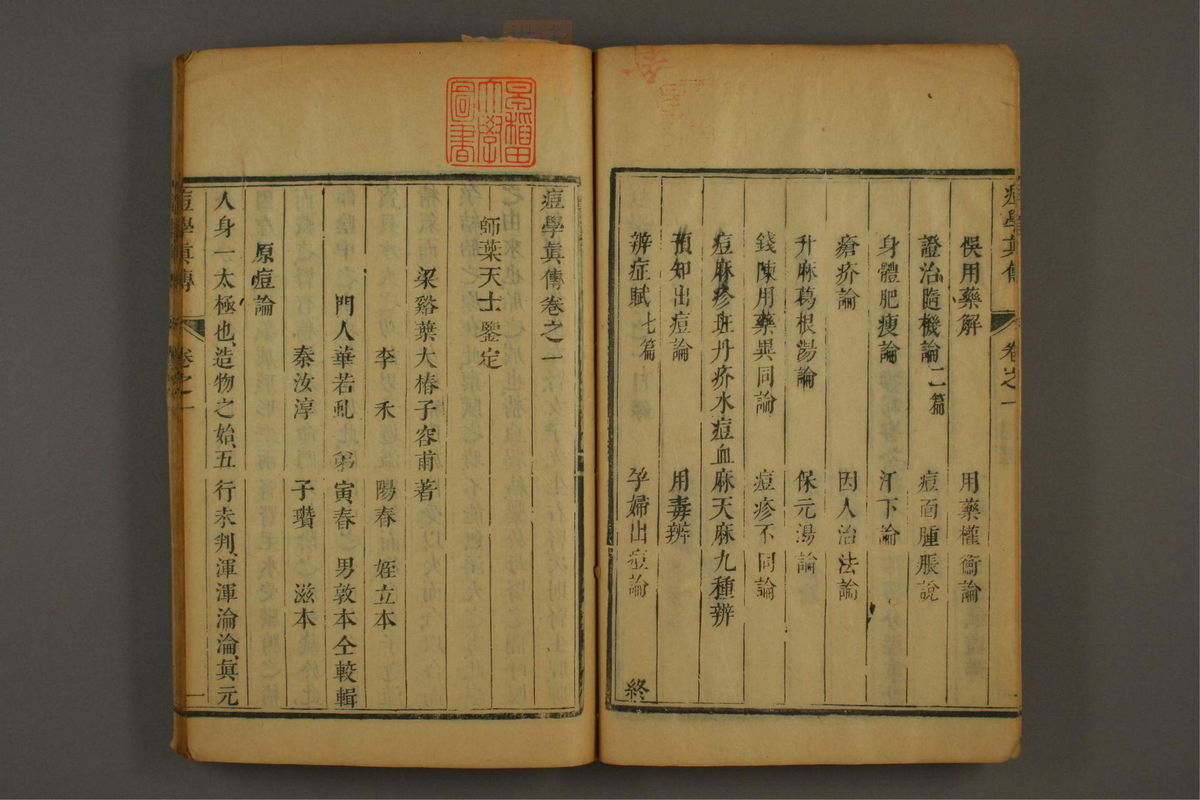 痘學眞傳
卷之一
悞用藥解　用藥權衡論
證治隨機論二篇　痘面腫脹說
身體肥瘦論　汗下論
瘡疥論　因人治法論
升麻葛根湯論　保元湯論
錢陳用藥異同論　痘疹不同論
痘麻疹斑丹疥水痘血麻天麻九種辨
預知出痘論　用毒辨
辨症賦七篇　孕婦出痘論　終
痘學眞傳卷之一
師葉天士鑒定
梁谿葉大椿子容甫著
李　禾　陽春　姪立本
門人華若虬　弟寅春　男敦本仝較輯
秦汝淳　子瓚　滋本
原痘論
人身一太極也、造物之始、五行未判、渾渾淪淪、眞元
痘學眞傳
卷之一
一